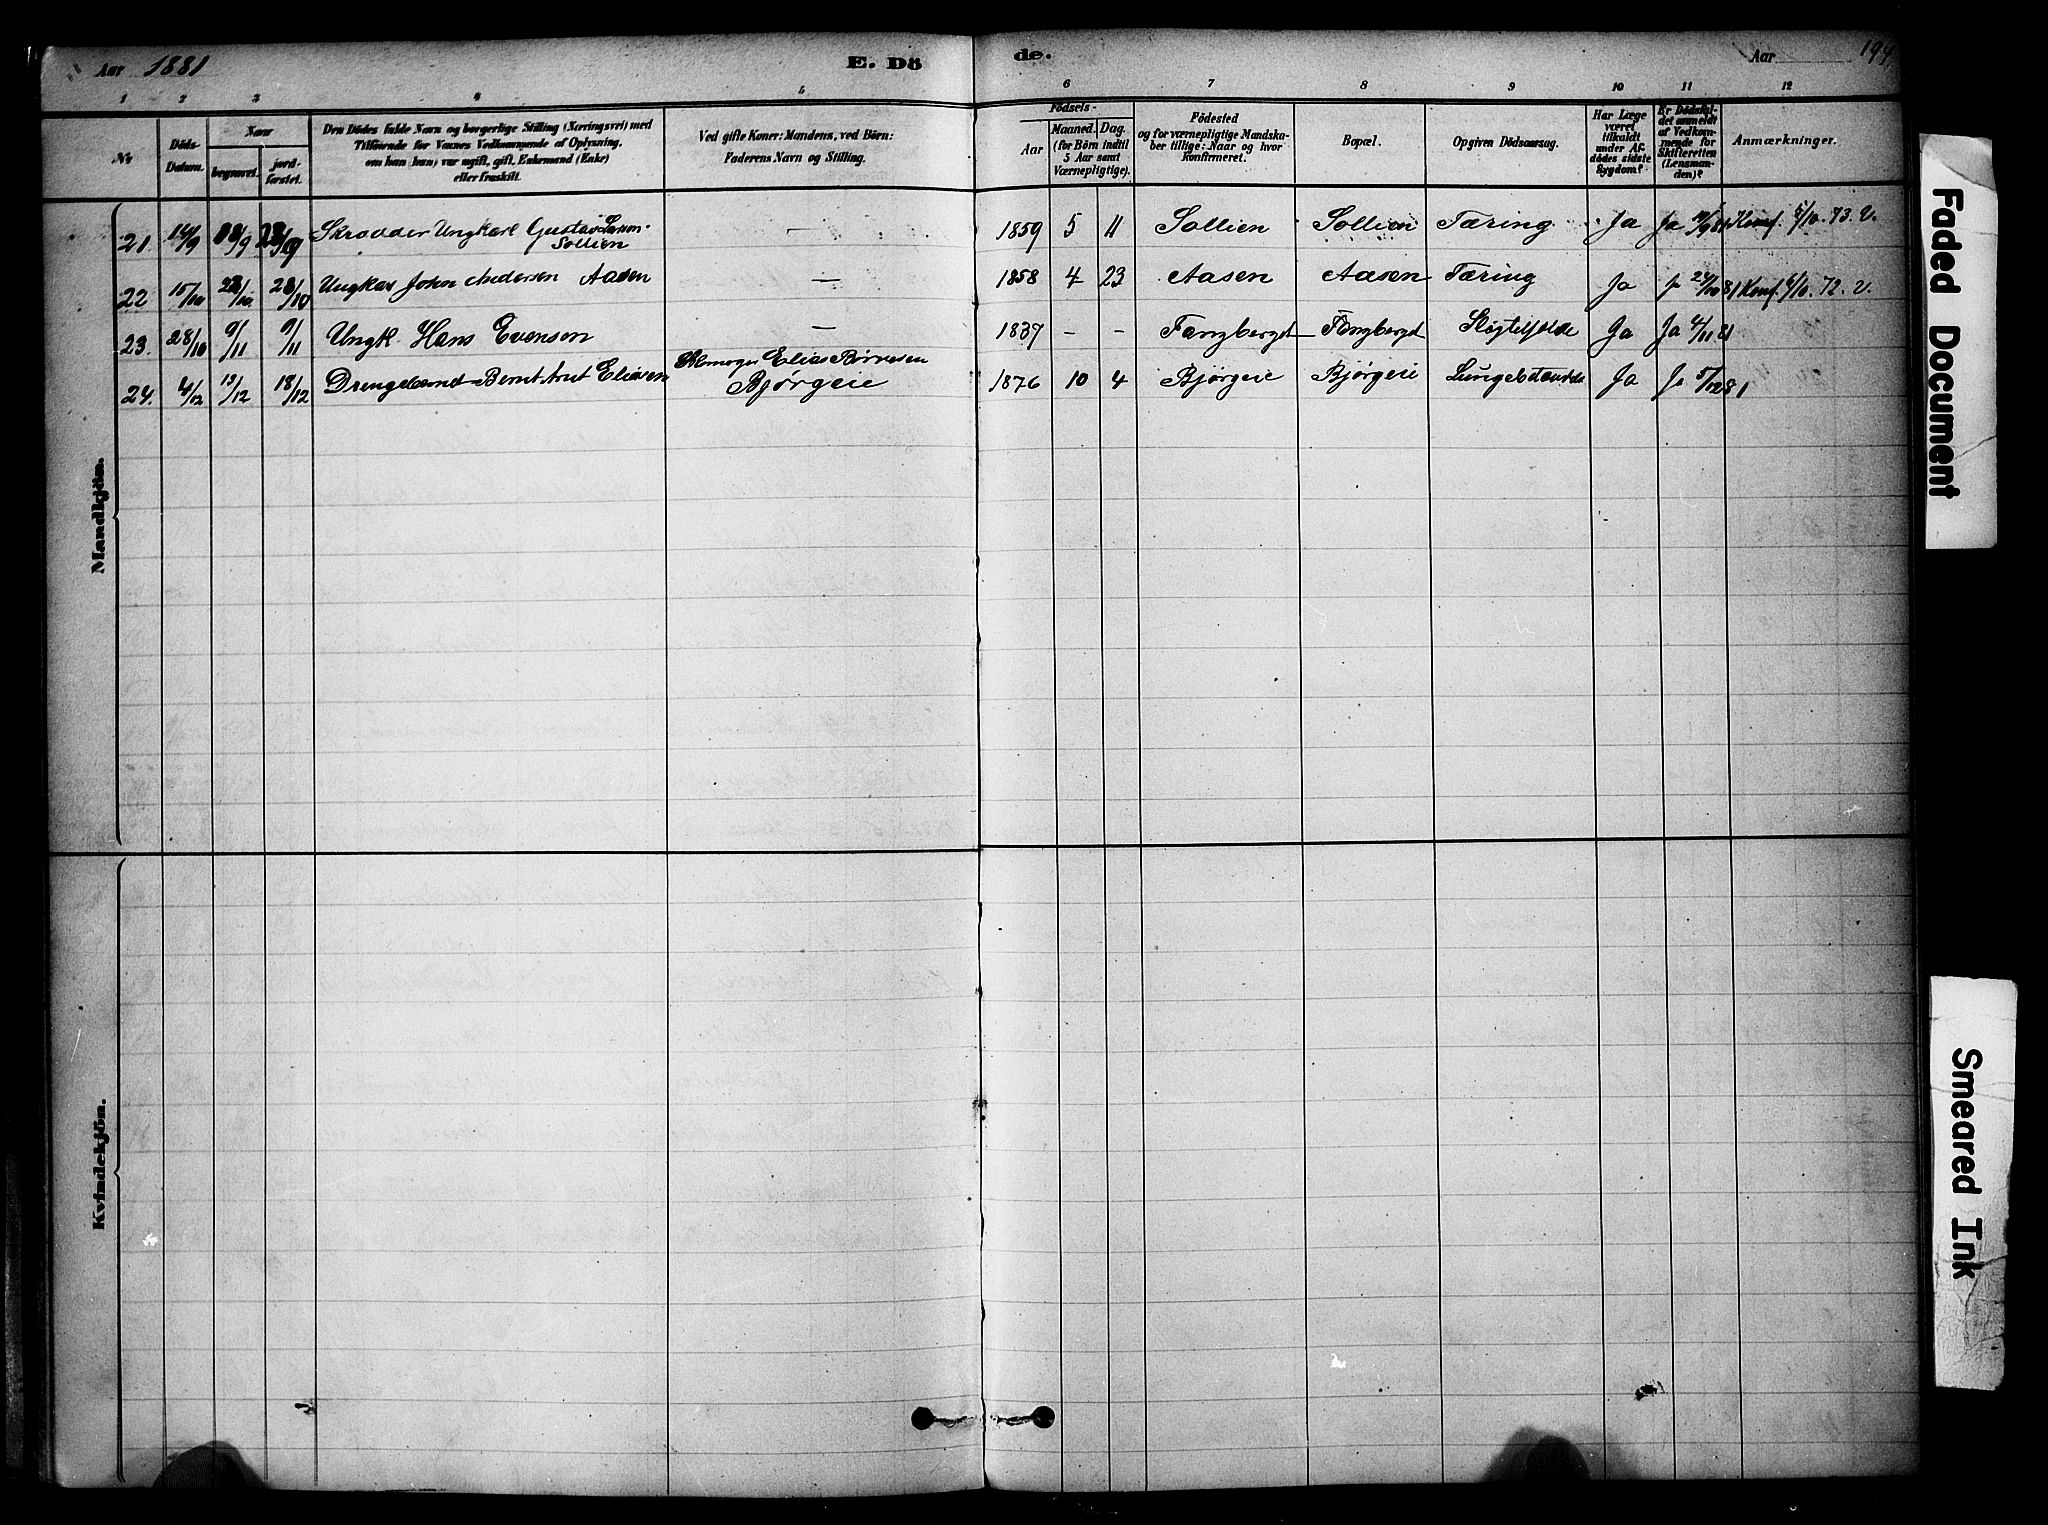 Aar 1881 E. Dö de. Aar 194.
1 2 3 4 5 6 7 8 9 10 11 12
No
Döds-Datum.
Naar
begravet.
jord-fæstet.
Den Dödes fulde Navn og borgerlige Stilling (Næringsvei) med
Tilföiende for Voxnes Vedkommende af Oplysning,
om han (hun) var ugift, gift, Enkemand (Enke)
eller fraskilt.
Ved gifte Koner: Mandens, ved Börn:
Faderens Navn og Stilling.
Födsels-
Aar
Maaned. Dag.
(for Börn indtil
5 Aar samt
Værnepligtige).
Födested
og for værnepligtige Mandska-
ber tillige: Naar og hvor
konfirmeret.
Bopæl.
Opgiven Dödsaarsag.
Har Læge
været
tilkaldt
under Af-
dödes sidste
Sygdom?
Er Dödsfal-
det anmeldt
af Vedkom-
mende for
Skifteretten
(Lensman-
den)?
Anmærkninger.
Mandkjön.
21. 14/9 /9 /9 Skrædder Ungkarl Gustav
Sollien — 1859 5 11 Sollien Sollien Tæring Ja Ja Konf. /10. 73. V.
22 15/10 /10 23/10 Ungkar John Andersen Aasen — 1858 4 23 Aasen Aasen Tæring Ja Ja 24/10 81 Konf. 6/10. 72. V.
23. 28/10 9/11 9/11 Ungk. Hans Evensen — 1837 - - Fangberget Fangberget Ja Ja 4/11 81
24. 4/12 13/12 18/12 Drengebarnet Bernt Arnt Eliasen Skomager Elias
Bjørgeie 1876 10 4 Bjørgeie Bjørgeie Ja Ja 5/12 81
Kvindekjön.
Faded Document
Smeared Ink